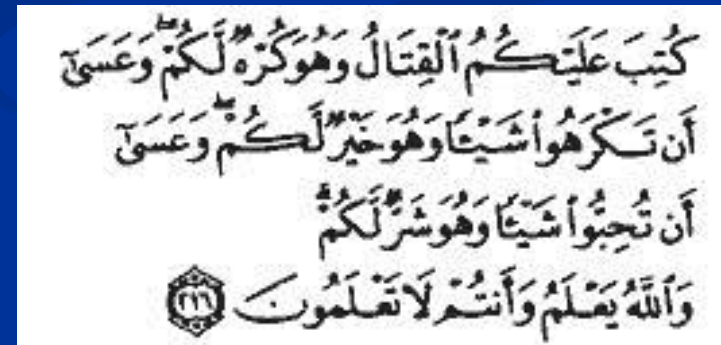 كُتِبَ عَلَيْكُمُ ٱلْقِتَالُ وَهُوَ كُرْهٌ لَّكُمْ ۖ وَعَسَىٰٓ
أَن تَكْرَهُوا۟ شَيْـًٔا وَهُوَ خَيْرٌ لَّكُمْ ۖ وَعَسَىٰٓ
أَن تُحِبُّوا۟ شَيْـًٔا وَهُوَ شَرٌّ لَّكُمْ ۗ
وَٱللَّهُ يَعْلَمُ وَأَنتُمْ لَا تَعْلَمُونَ ٢١٦